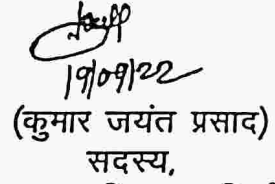 19/09/22
(कुमार जयंत प्रसाद)
सदस्य,